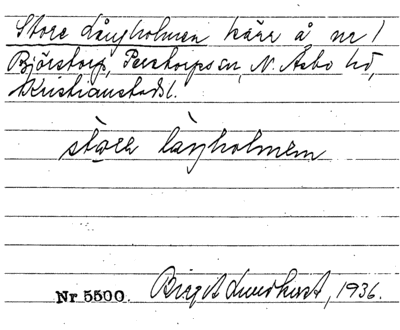 Store Långholmen kärr å nr 1
Björstorp, Perstorps sn, N. Åsbo hd,
Kristianstads l.
stɔrə låŋholmən
Nr 5500. Birgit Lundkvist, 1936.